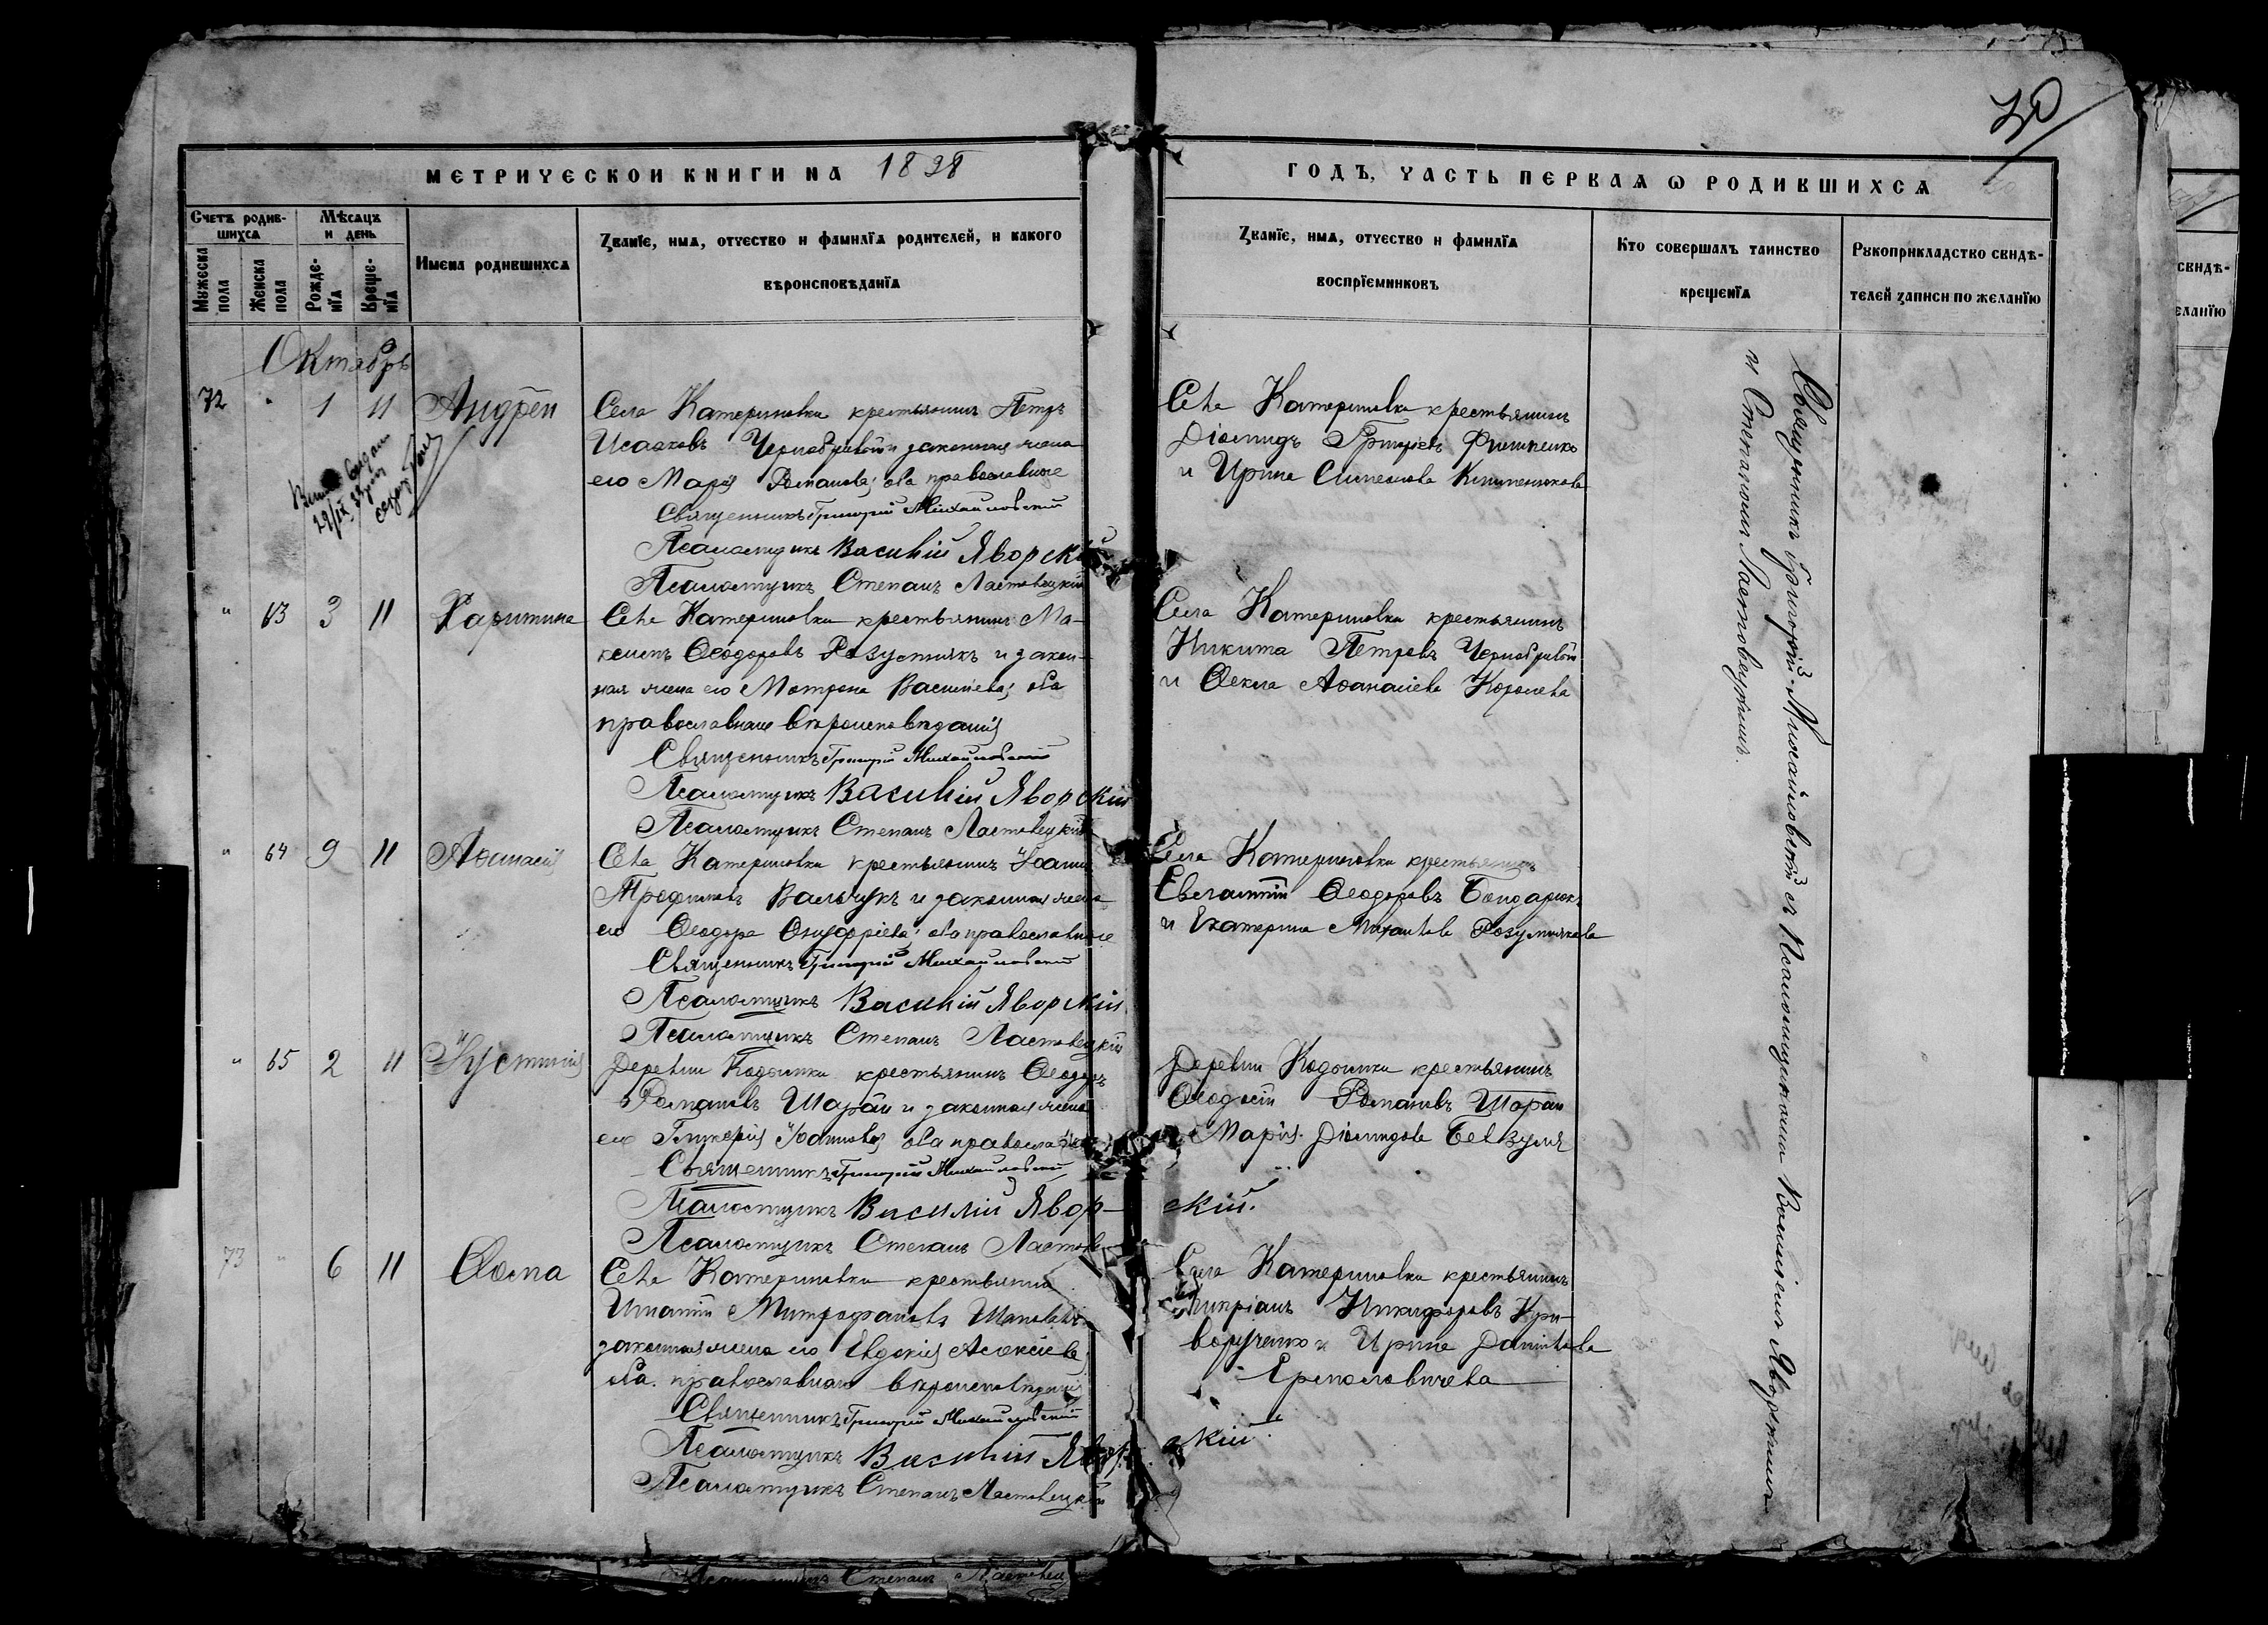 70
МЕТРИЧЕСКОИ КНИГИ НА 1898
ГОДЪ, ЧАСТЬ ПЕРВАЯ Ѡ РОДИВШИХСЯ
Счетъ родив-
шихся
Мѣсяцъ
и день
Мужеска
пола
Женска
пола
Рожде-
нїя
Креще-
нїя
Имена родившихся
Званїе, имя, отчество и фамилїя родителей, и какого
вѣроисповѣданїя
Званїе, имя, отчество и фамилїя
воспрїемниковъ
Кто совершалъ таинство
крещенїя
Рукоприкладство свидѣ-
телей записи по желанїю
Октябрь
72 " 1 11 Андрей
Села Катериновки крестьянинъ Петръ
Исааковъ Чернобривый и законная жена
его Марія Романова; оба православные
Священникъ Григорій Михайловскій
Псаломщикъ Василій Яворскій
Псаломщикъ Степанъ Ластовецкій
Села Катериновки крестьянинъ
Діомидъ Григорьевъ
и Ирина Симеонова
" 63 3 11 Харитина
Села Катериновки крестьянинъ Ма-
ксимъ Ѳеодоровъ Розумнякъ и закон-
ная жена его Матрона Васильева; оба
православнаго вѣроисповѣданія
Священникъ Григорій Михайловскій
Псаломщикъ Василій Яворскій
Псаломщикъ Степанъ Ластовецкій
Села Катериновки крестьянинъ
Никита Петровъ Чернобривый
и Ѳекла Аѳанасіева Королева
" 64 9 11
Села Катериновки крестьянинъ Іоаннъ
Трофимовъ Вальчукъ и законная жена
его Ѳеодора Онуфріева; оба православные
Священникъ Григорій Михайловскій
Псаломщикъ Василій Яворскій
Псаломщикъ Степанъ Ластовецкій
Села Катериновки крестьянинъ
Евгампій Ѳеодоровъ Бондарюкъ
и Екатерина Михайлова Розумнякова
" 65 2 11 Іустинія
Деревни крестьянинъ Ѳеодоръ
Романовъ Шарай и законная жена
его Гликерія Іоаннова; оба православные
Священникъ Григорій Михайловскій
Псаломщикъ Василій Явор-
скій.
Псаломщикъ Степанъ Ластов
Деревни крестьянинъ
Ѳеодосій Романовъ Шарай
и Марія Діомидова Безвуля
73 " 6 11 Ѳома
Села Катериновки крестьянинъ
Игнатій Митрофановъ
законная жена его Евдокія Алексіева;
оба православнаго вѣроисповѣданія
Священникъ Григорій Михайловскій
Псаломщикъ Василій Явор-
скій.
Псаломщикъ Степанъ Ластовецкій
Села Катериновки крестьянинъ
Кипріанъ Никифоровъ Кри-
ворученко и Ирина Даніилова
Ермоловичева
Священникъ Григорій Михайловскій съ Псаломщиками Василіемъ Яворскимъ
и Степаномъ Ластовецкимъ.
свидѣ-
еланїю
Степанъ Ластовец